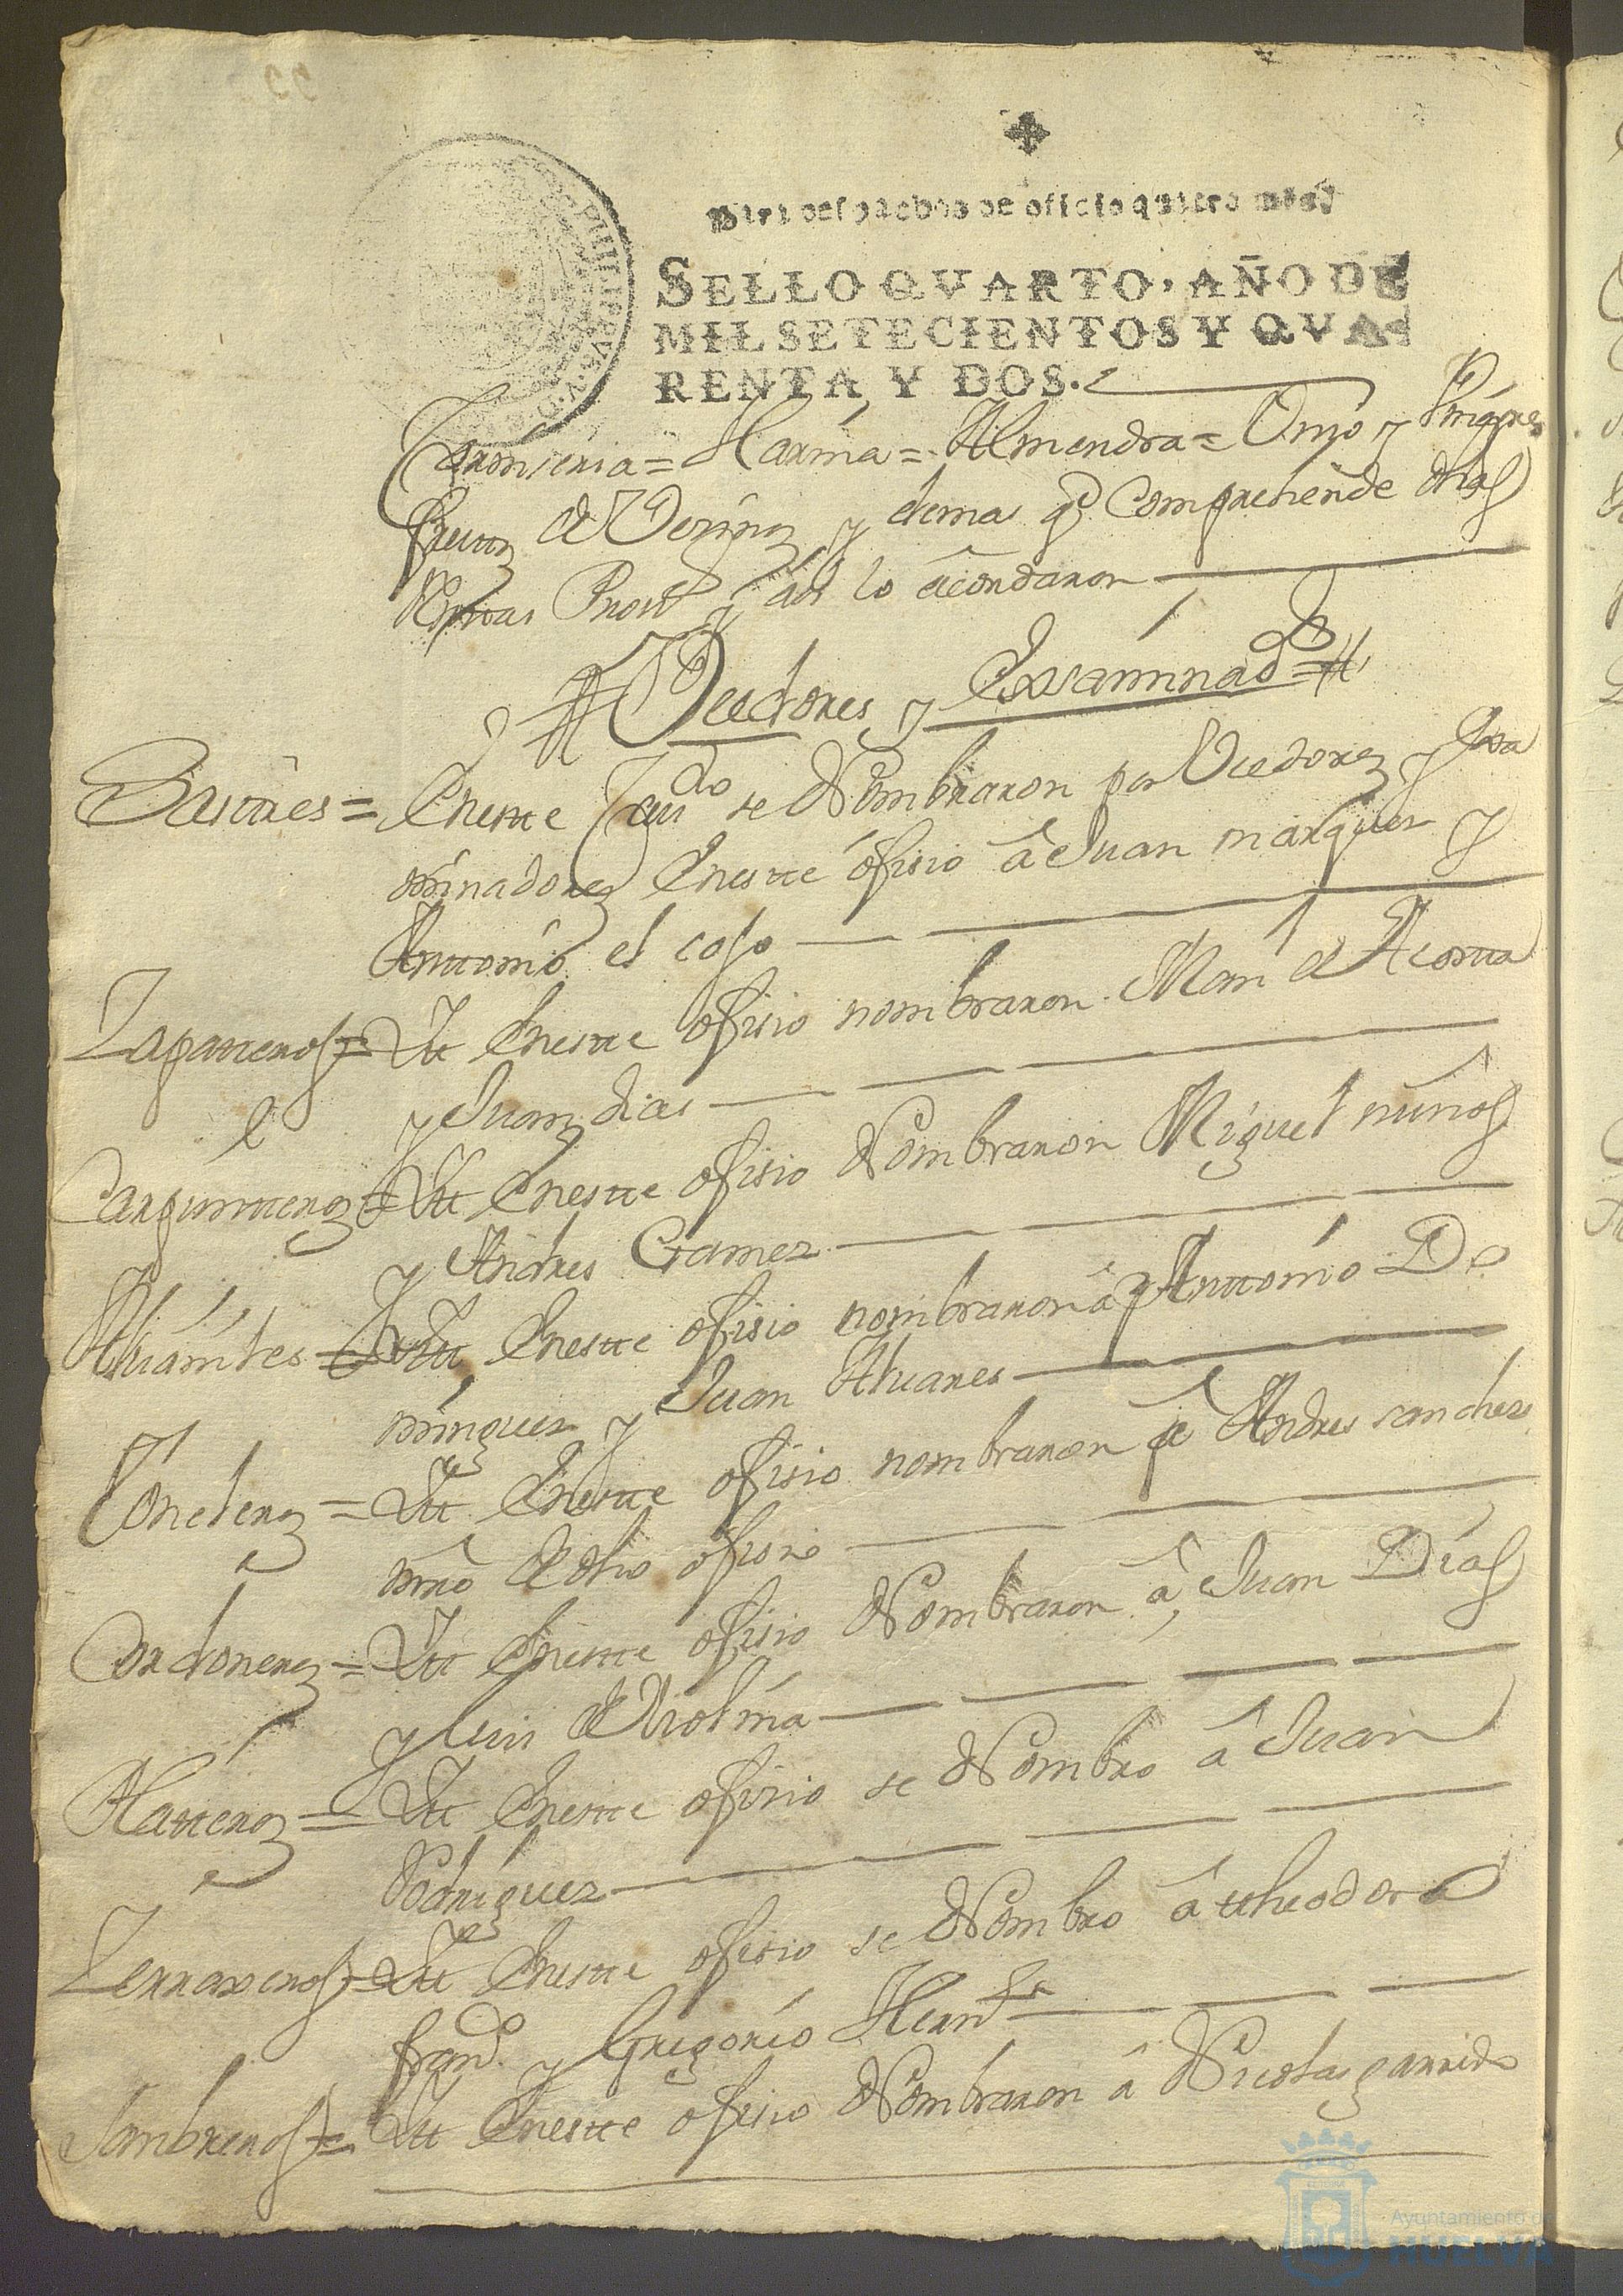 Para despachos de oficio quatro mrs.
SELLO QVARTO, AÑO DE
MIL SETECIENTOS Y QVA-
RENTA Y DOS.
Carniseria = Harina = Almendra =
frutas de Verano y demas q.e Comprehende dhas
Rentas Prov.s y asi lo acordaron
Veedores y Exsaminad.s
Sastres = En este Cavi.do se Nombraron por Veedores y Exsa
minadores En este ofisio â Juan marques y
Anttonio el coso
Zapatteros = Itt En este ofisio nombraron Man.l de Acosta
y Juan dias
Carpintteros = Itt En este ofisio Nombraron Miguel nuños
y Andres Gamez
Alvañiles = Itt En este ofisio nombraron â Anttonio Do
minguez y Juan Alvares
Toneleros = Itt En este ofisio nombraron â Andres sanchez
mro de dho ofisio
Cordoneros = Itt En este ofisio Nombraron â Juan Días
y Luis de Molina
Platteros = Itt En este ofisio se Nombro â Juan
Rodriguez
Zerraxeros = Itt En este ofisio se Nombro â ttheodoro
fran.co y Gregorio Hern.s
Sombreros = Itt En este ofisio Nombraron â Nicolas garrido
Ayuntamiento de
HUELVA